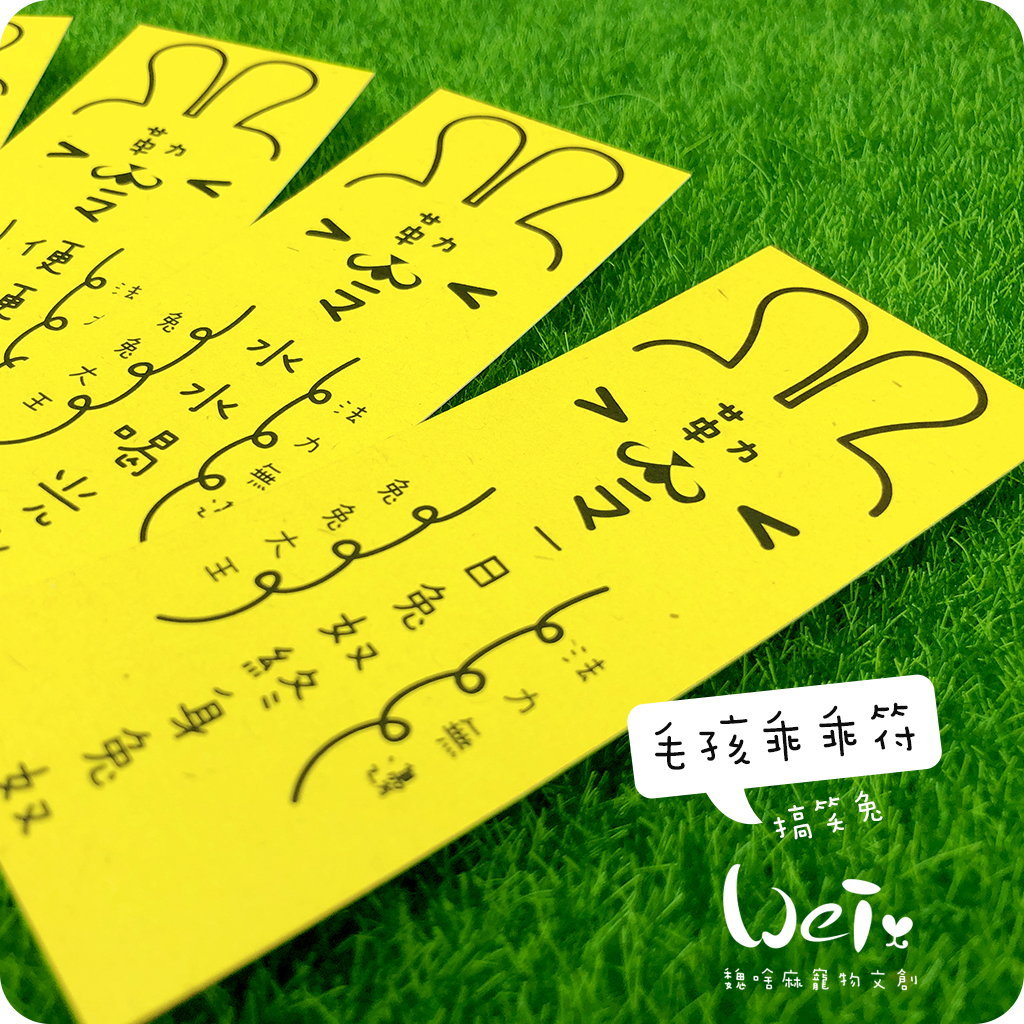 勒令
便便
法
勒令
兔兔大王
水水喝光
法力無
勒令
兔兔大王
一日兔奴終身兔奴
法力無邊
毛孩乖乖符
搞笑兔
WeiX
魏啥麻寵物文創